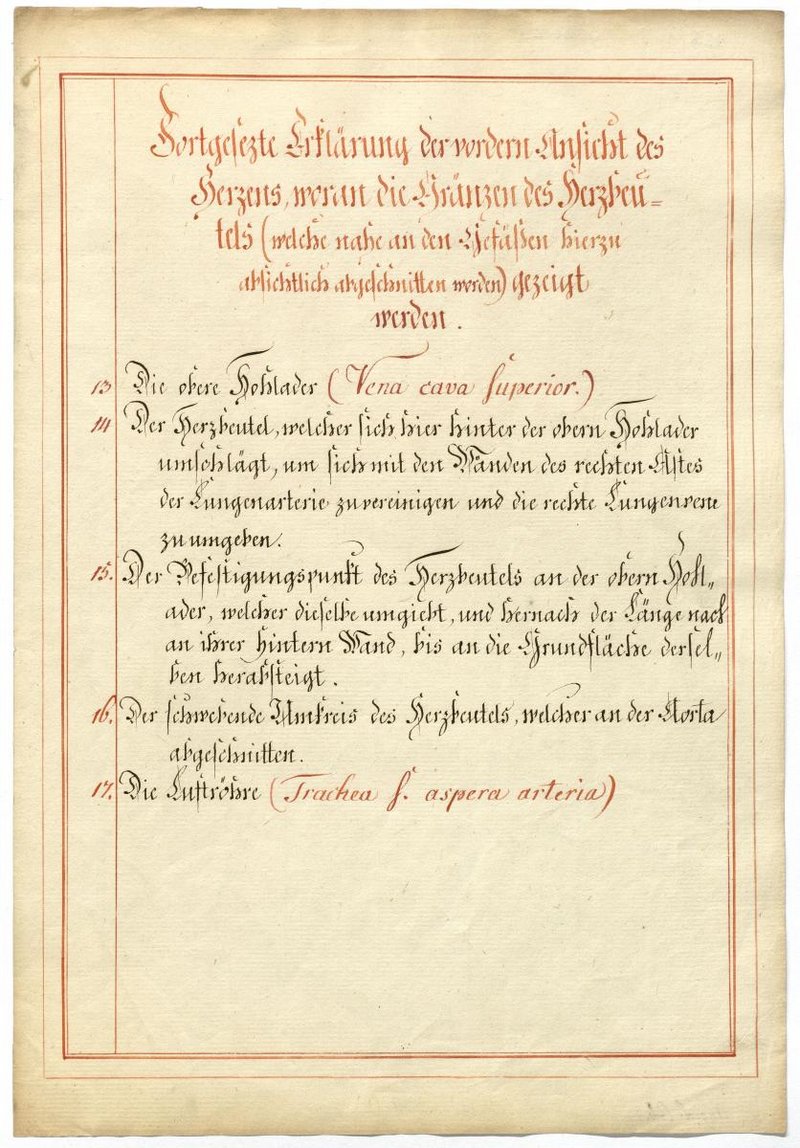 Fortgesezte Erklärung der vordern Ansicht des
Herzens, woran die Gränzen des Herzbeu=
tels (welche nahe an den Gefäßen hierzu
absichtlich abgeschnitten worden) gezeigt
werden.
13 Die obere Hohlader (Vena cava superior.)
14 Der Herzbeutel, welcher sich hier hinter der obern Hohlader
umschlägt, um sich mit den Wänden des rechten Astes
der Lungenarterie zu vereinigen und die rechte Lungenvene
zu umgeben.
15. Der Befestigungspunkt des Herzbeutels an der obern Hohl„
ader, welcher dieselbe umgiebt, und hernach der Länge nach
an ihrer hintern Wand, bis an die Grundfläche dersel„
ben herabsteigt.
16. Der schwebende Umkreis des Herzbeutels, welcher an der Aorta
abgeschnitten.
17. Die Luftröhre (Trachea s. aspera arteria)